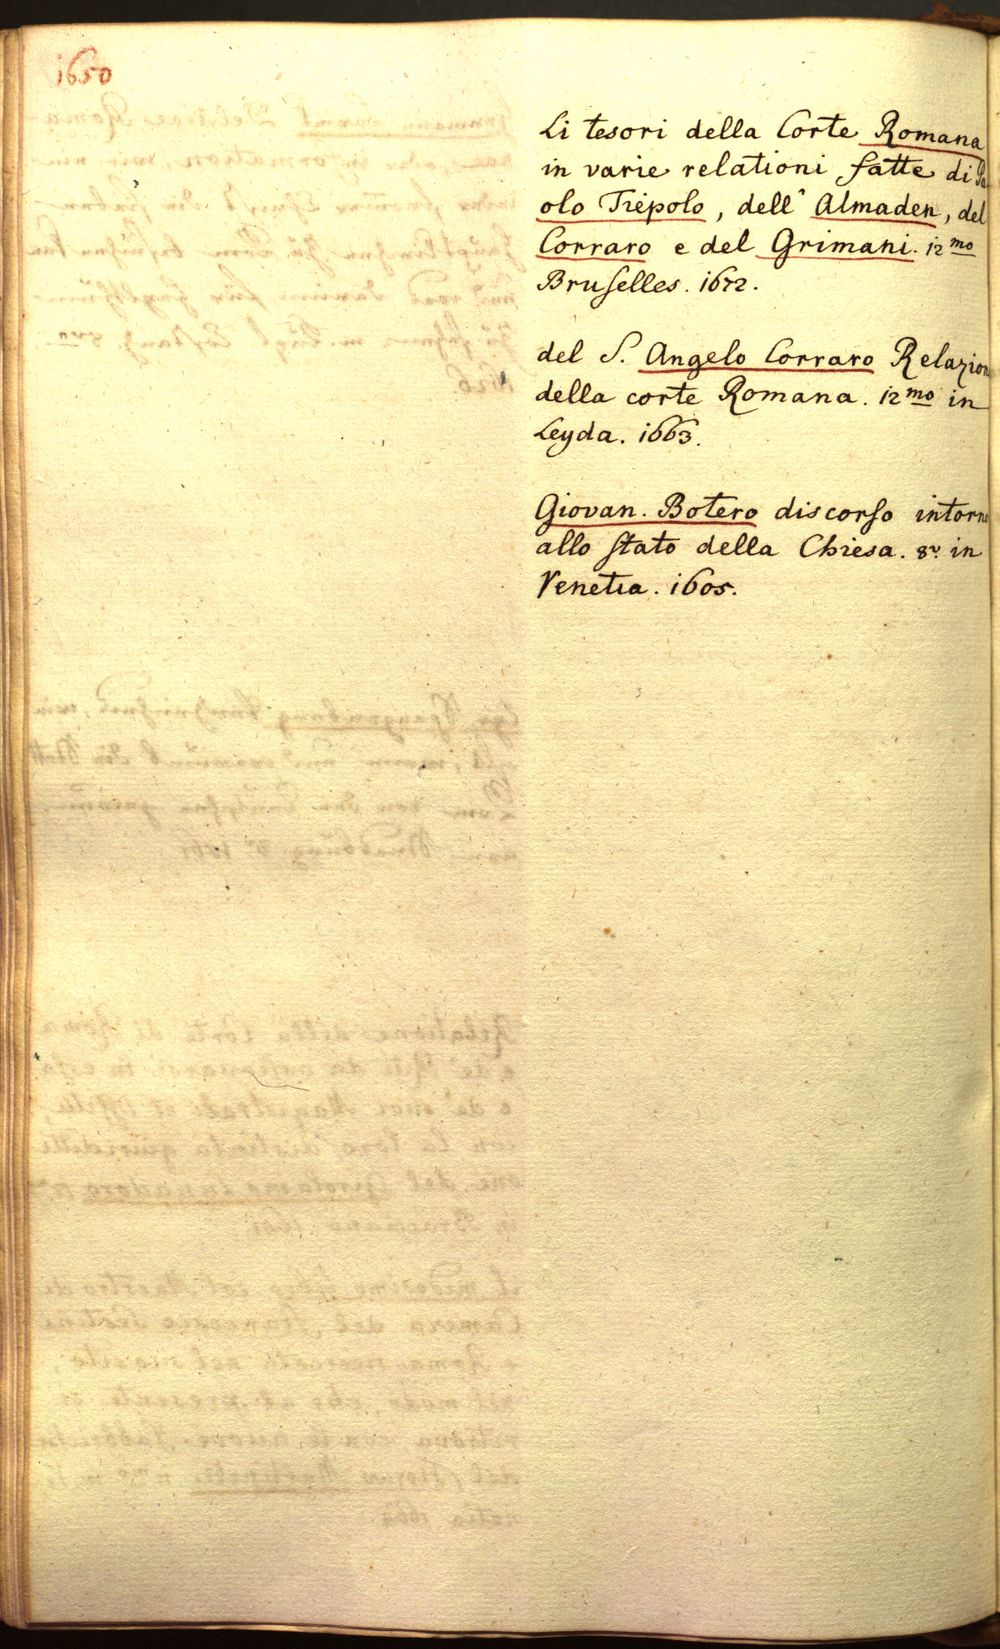 1650
Li tesori della Corte Romana
in varie relationi fatte di Pa
olo Tiepolo, dell' Almaden, del
Corraro e del Grimani. 12mo
Bruselles. 1672.
del S. Angelo Corraro Relazion
della corte Romana. 12mo in
Leyda. 1663.
Giovan. Botero discorso intorno
allo stato della Chiesa. 8v. in
Venetia. 1605.